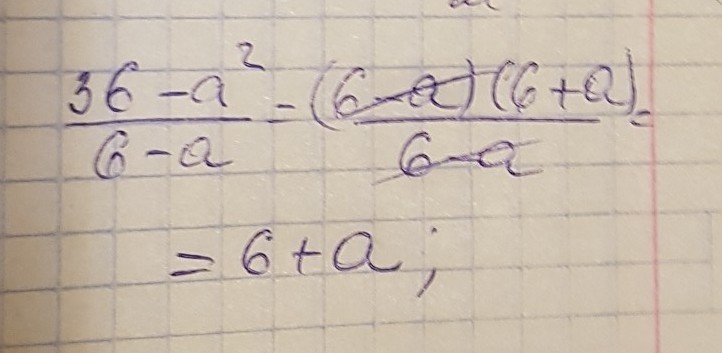 36-a²/6-a = (6-a)(6+a)/6-a =
= 6+a;